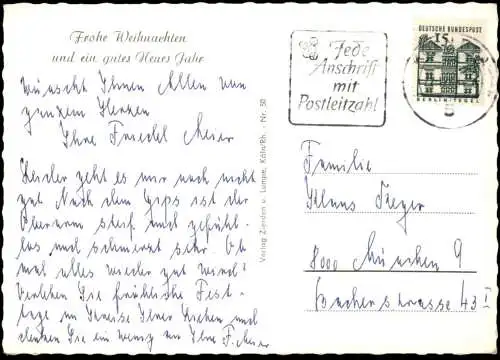 Frohe Weihnachten
und ein gutes Neues Jahr
wünscht Ihnen Allen von
ganzem Herzen
Ihre Friedel Meier
Leider geht es mir noch nicht
gut Nach dem Gips ist der
Oberarm steif und gefühl-
los und schmerzt sehr. Ob
mal alles wieder gut wird?
Verleben Sie fröhliche Fest-
tage im Kreise Ihrer Lieben und
denken Sie ein wenig an Ihre F. Meier
Verlag Zienden u. Lumpe, Köln/Rh. - Nr. 50
Jede
Anschrift
mit
Postleitzahl
DEUTSCHE BUNDESPOST
15
BERLIN-TEGEL
Familie
Klaus Jaeger
8000 München 9
43 I